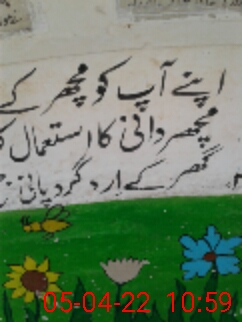 اپنے آپ کو مچھر کے
مچھر دانی کا استعمال
گھر کے ارد گرد پانی
05-04-22 10:59